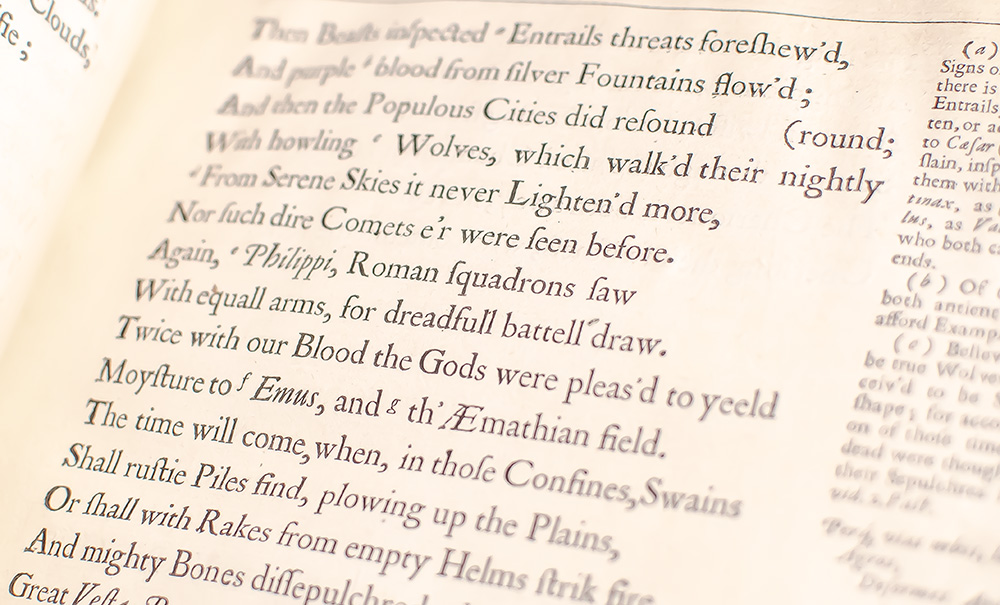 Clouds,
fie;
Then Beasts inſpected ᵃ Entrails threats foreſhew'd,
And purple ᵇ blood from ſilver Fountains flow'd;
And then the Populous Cities did reſound (round;
With howling ᶜ Wolves, which walk'd their nightly
ᵈ From Serene Skies it never Lighten'd more,
Nor ſuch dire Comets e'r were ſeen before.
Again, ᵉ Philippi, Roman ſquadrons ſaw
With equall arms, for dreadfull battell draw.
Twice with our Blood the Gods were pleas'd to yeeld
Moyſture to ᶠ Emus, and ᵍ th' Æmathian field.
The time will come, when, in thoſe Confines, Swains
Shall ruſtie Piles find, plowing up the Plains,
Or ſhall with Rakes from empty Helms ſtrik fire
And mighty Bones diſſepulchred
Great
(a)
Signs o
there is
Entrails,
ten, or a
to Cæſar
ſlain, inſp
them with
tinax, as
lus, as Va
who both c
ends.
(b) Of
both antient
afford Examp
(c) Believ
be true Wolve
ceiv'd to be
ſhape; for acco
on of thoſe time
dead were though
their Sepulchres